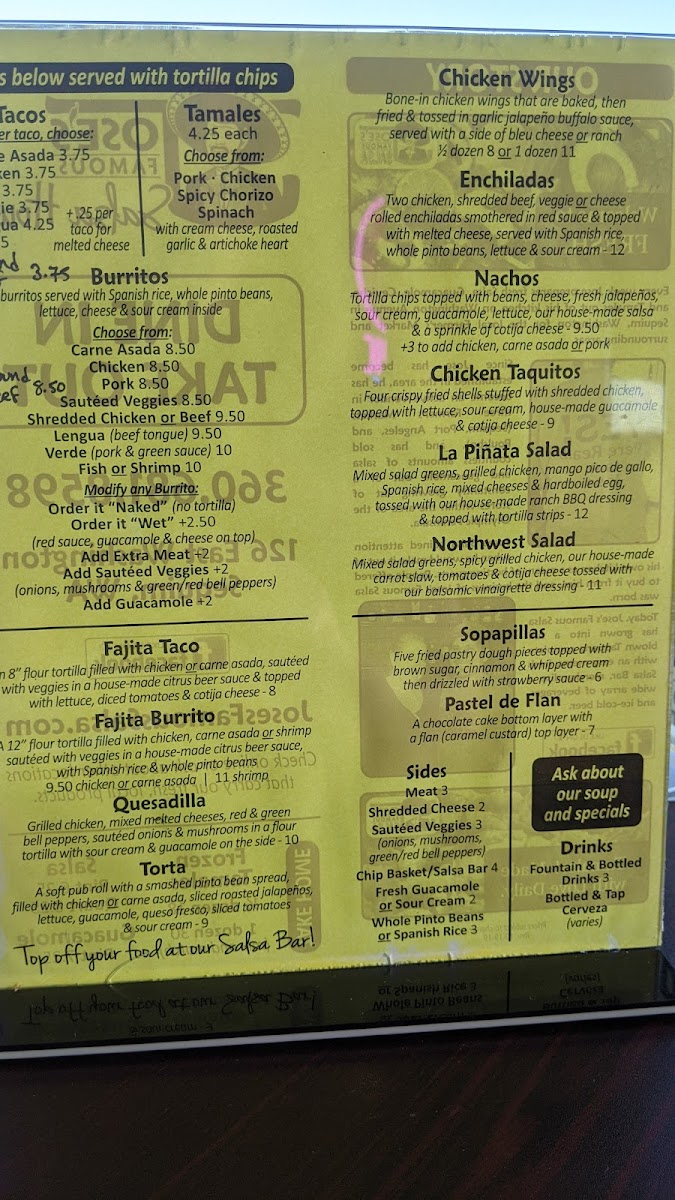 s below served with tortilla chips
Tacos
er taco, choose:
e Asada 3.75
ken 3.75
3.75
ie 3.75
ua 4.25
5
+ .25 per
taco for
melted cheese
3.75
Tamales
4.25 each
Choose from:
Pork · Chicken
Spicy Chorizo
Spinach
with cream cheese, roasted
garlic & artichoke heart
Burritos
burritos served with Spanish rice, whole pinto beans,
lettuce, cheese & sour cream inside
Choose from:
Carne Asada 8.50
Chicken 8.50
Pork 8.50
8.50
Sautéed Veggies 8.50
Shredded Chicken or Beef 9.50
Lengua (beef tongue) 9.50
Verde (pork & green sauce) 10
Fish or Shrimp 10
Modify any Burrito:
Order it “Naked” (no tortilla)
Order it “Wet” +2.50
(red sauce, guacamole & cheese on top)
Add Extra Meat +2
Add Sautéed Veggies +2
(onions, mushrooms & green/red bell peppers)
Add Guacamole +2
Fajita Taco
n 8” flour tortilla filled with chicken or carne asada, sautéed
with veggies in a house-made citrus beer sauce & topped
with lettuce, diced tomatoes & cotija cheese - 8
Fajita Burrito
A 12” flour tortilla filled with chicken, carne asada or shrimp
sautéed with veggies in a house-made citrus beer sauce,
with Spanish rice & whole pinto beans
9.50 chicken or carne asada | 11 shrimp
Quesadilla
Grilled chicken, mixed melted cheeses, red & green
bell peppers, sautéed onions & mushrooms in a flour
tortilla with sour cream & guacamole on the side - 10
Torta
A soft pub roll with a smashed pinto bean spread,
filled with chicken or carne asada, sliced roasted jalapeños,
lettuce, guacamole, queso fresco, sliced tomatoes
& sour cream - 9
Top off your food at our Salsa Bar!
Chicken Wings
Bone-in chicken wings that are baked, then
fried & tossed in garlic jalapeño buffalo sauce,
served with a side of bleu cheese or ranch
½ dozen 8 or 1 dozen 11
Enchiladas
Two chicken, shredded beef, veggie or cheese
rolled enchiladas smothered in red sauce & topped
with melted cheese, served with Spanish rice,
whole pinto beans, lettuce & sour cream - 12
Nachos
Tortilla chips topped with beans, cheese, fresh jalapeños,
sour cream, guacamole, lettuce, our house-made salsa
& a sprinkle of cotija cheese - 9.50
+3 to add chicken, carne asada or pork
Chicken Taquitos
Four crispy fried shells stuffed with shredded chicken,
topped with lettuce, sour cream, house-made guacamole
& cotija cheese - 9
La Piñata Salad
Mixed salad greens, grilled chicken, mango pico de gallo,
Spanish rice, mixed cheeses & hardboiled egg,
tossed with our house-made ranch BBQ dressing
& topped with tortilla strips - 12
Northwest Salad
Mixed salad greens, spicy grilled chicken, our house-made
carrot slaw, tomatoes & cotija cheese tossed with
our balsamic vinaigrette dressing - 11
Sopapillas
Five fried pastry dough pieces topped with
brown sugar, cinnamon & whipped cream
then drizzled with strawberry sauce - 6
Pastel de Flan
A chocolate cake bottom layer with
a flan (caramel custard) top layer - 7
Sides
Meat 3
Shredded Cheese 2
Sautéed Veggies 3
(onions, mushrooms,
green/red bell peppers)
Chip Basket/Salsa Bar 4
Fresh Guacamole
or Sour Cream 2
Whole Pinto Beans
or Spanish Rice 3
Ask about
our soup
and specials
Drinks
Fountain & Bottled
Drinks 3
Bottled & Tap
Cerveza
(varies)